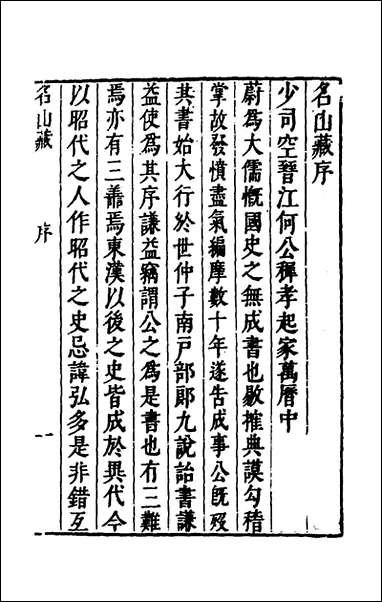 名山藏序
少司空晉江何公稺孝起家萬曆中
蔚爲大儒慨國史之無成書也敭搉典謨勾稽
掌故發憤盡氣編摩數十年遂告成事公旣歿
其書始大行於世仲子南戸部郞九說詒書謙
益使爲其序謙益竊謂公之爲是書也有三難
焉亦有三善焉東漢以後之史皆成於異代今
以昭代之人作昭代之史忌諱弘多是非錯互
名山藏
序
一